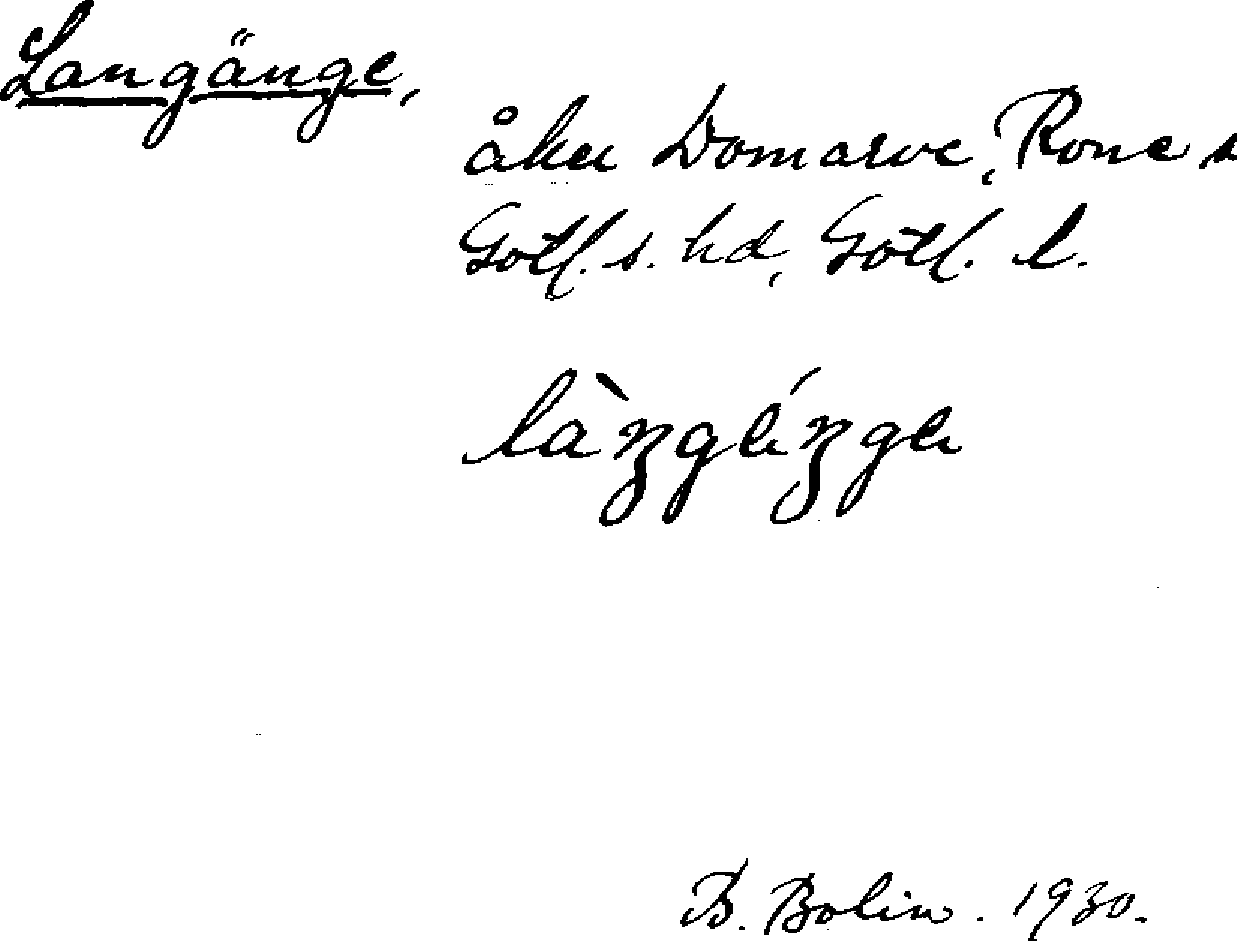 Langänge,
åker Domarve, Rone s
Gotl. s. hd, Gotl. l.
làŋgéŋge
B. Bolin. 1930.